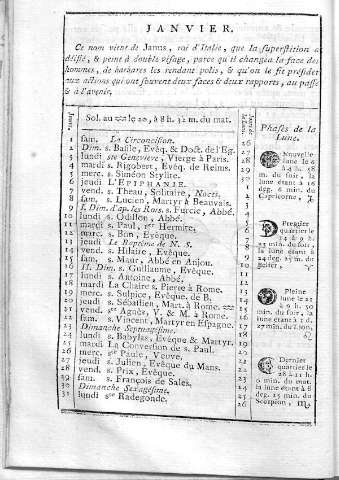 JANVIER.
Ce nom vient de Janus, roi d'Italie, que la superstition a
déifié, & peint à double visage, parce qu'il changea la face des
hommes, de barbares les rendant polis, & qu'on le fit présider
aux actions qui ont souvent deux faces & deux rapports, au passé
& à l'avenir.
Sol. au le 20, à 8 h. 32 m. du mat.
1 sam. La Circoncision.
2 Dim. s. Basile, Evêq. & Doct. de l'Eg.
3 lundi ste Geneviève, Vierge à Paris.
4 mardi s. Rigobert, Evêq. de Reims.
5 merc. s. Siméon Stylite.
6 jeudi L'EPIPHANIE.
7 vend. s. Théau, Solitaire, Noces.
8 sam. s. Lucien, Martyr à Beauvais.
9 I. Dim. s. Furcie, Abbé.
10 lundi s. Odillon, Abbé.
11 mardi s. Paul, 1er Hermite.
12 merc. s. Bon, Evêque.
13 jeudi Le Baptême de N. S.
14 vend. s. Hilaire, Evêque.
15 sam. s. Maur, Abbé en Anjou.
16 II. Dim. s. Guillaume, Evêque.
17 lundi s. Antoine, Abbé.
18 mardi La Chaire s. Pierre à Rome.
19 merc. s. Sulpice, Evêque de B.
20 jeudi s. Sébastien, Mart. à Rome.
21 vend. ste Agnès, V. & M. à Rome.
22 sam. s. Vincent, Martyr en Espagne.
23 Dimanche Septuagésime.
24 lundi s. Babylas, Evêque & Martyr.
25 mardi La Conversion de s. Paul.
26 merc. ste Paule, Veuve.
27 jeudi s. Julien, Evêque du Mans.
28 vend. s. Prix, Evêque.
29 sam. s. François de Sales.
30 Dimanche Sexagésime.
31 lundi ste Radegonde.
Phases de la
Lune.
Nouvelle
lune le 6
à 4 h. 58
m. du soir, la
lune étant à 16
deg. 6 min. du
Capricorne,
Premier
quartier le
14 à 9 h.
23 min. du soir,
la lune étant à
24 deg. 25 m. du
Bélier,
Pleine
lune le 21
à 9 h. 30
min. du soir, la
lune étant à 1 d.
27 min. du Lion,
Dernier
quartier le
28 à 11 h.
6 min. du mat.
la lune étant à 8
deg. 15 min. du
Scorpion,